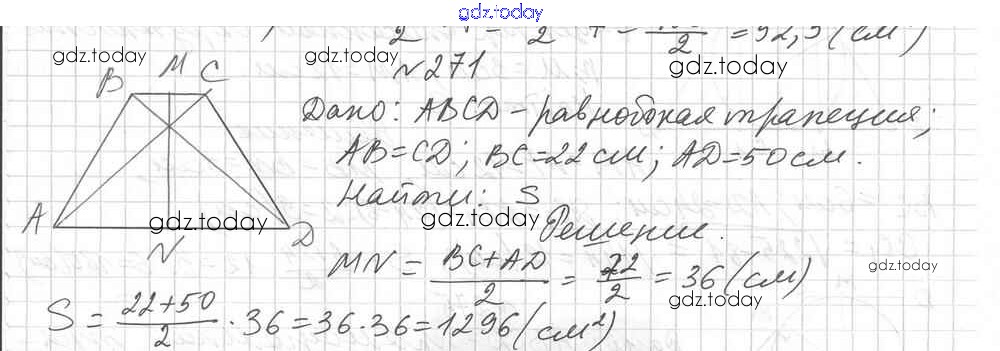 gdz.today
= 92,5 (см)
gdz.today gdz.today
№271
B M C
Дано: ABCD - равнобокая трапеция;
AB=CD; BC=22 см; AD=50 см.
Найти: S
A gdz.today D gdz.today
N
Решение.
MN = BC+AD/2 = 72/2 = 36 (см)
gdz.today
gdz.today
S = 22+50/2 · 36 = 36 · 36 = 1296 (см²)